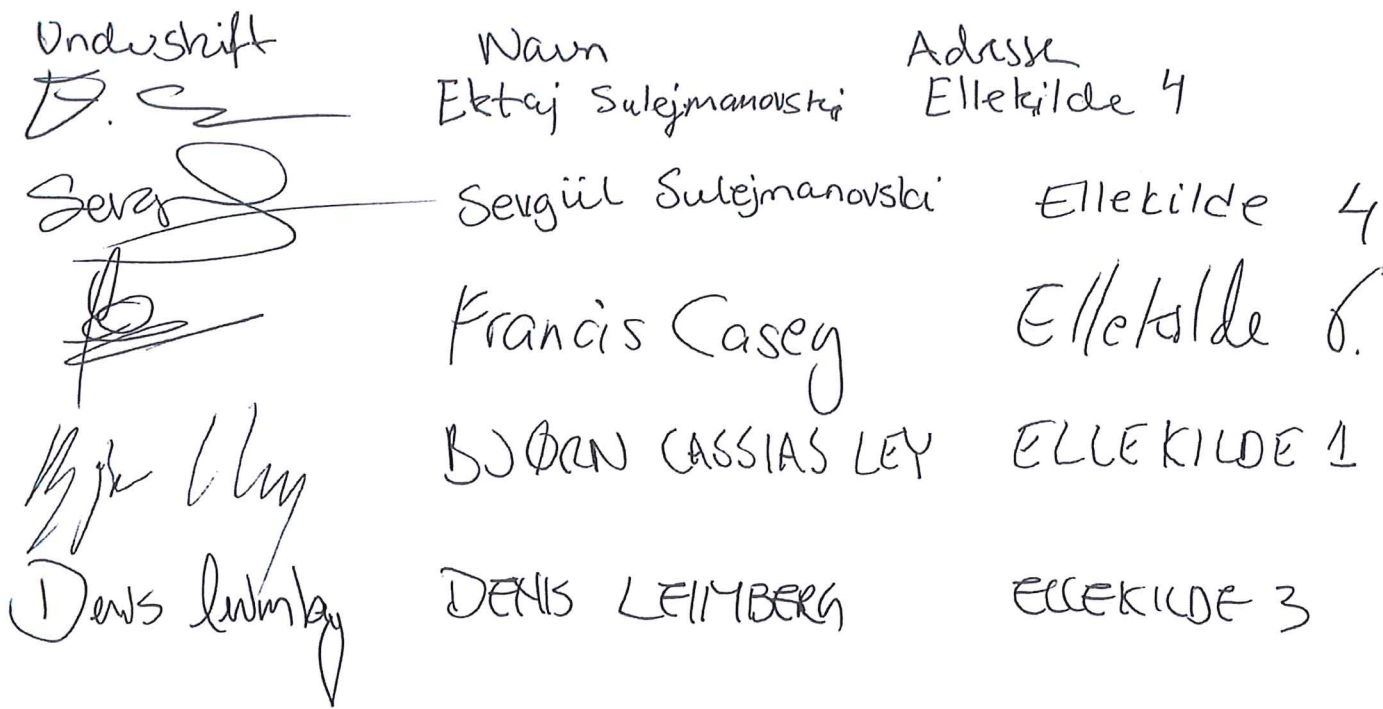 Underskift Navn Adresse
Ektaj Sulejmanovski Ellekilde 4
Sevgül Sulejmanovski Ellekilde 4
Francis Casey Ellekilde 6.
BJØRN CASSIAS LEY ELLEKILDE 1
Denis DENIS LEIMBERG ELLEKILDE 3